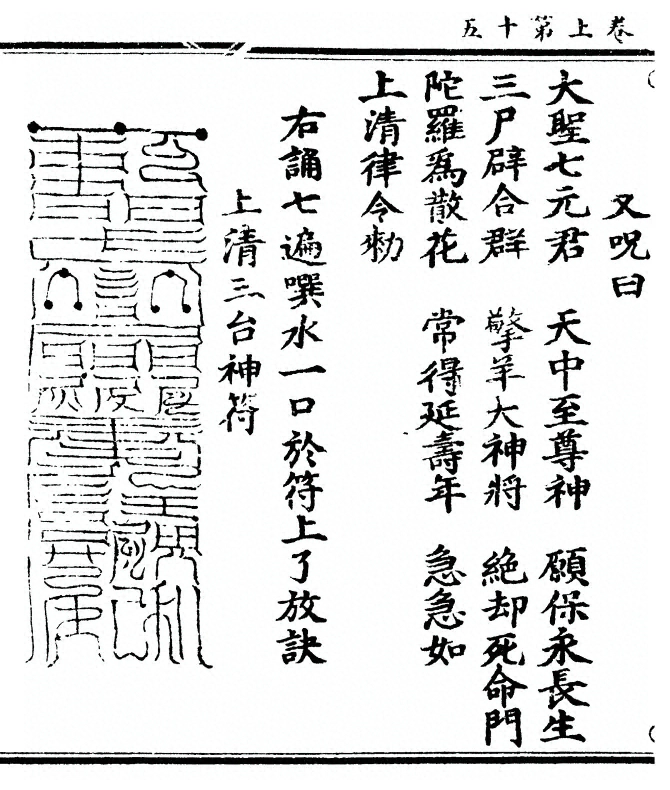 卷上第十五
又呪曰
大聖七元君　天中至尊神　願保永長生
三尸辟合群　擎羊大神將　絕却死命門
陀羅為散花　常得延壽年　急急如
上清律令勑
右誦七遍噀水一口於符上了放訣
上清三台神符